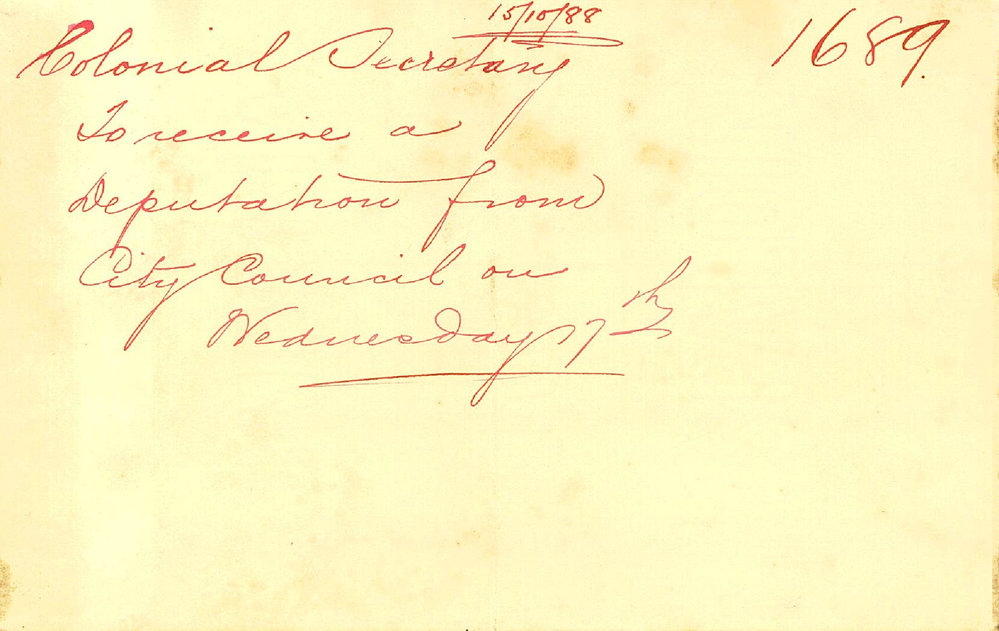 15/10/88
1689.
Colonial Secretary
To receive a
Deputation from
City Council on
Wednesday 17th